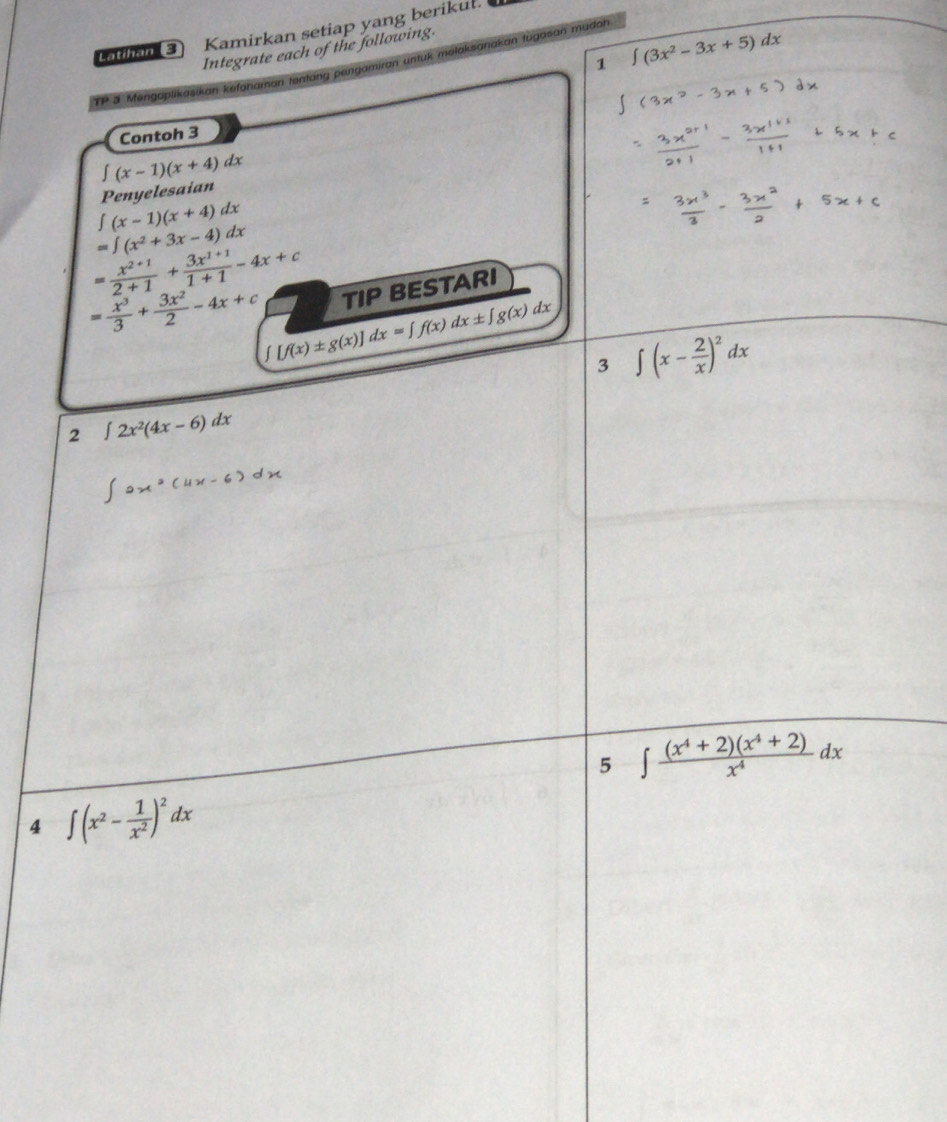 Latihan 3 Kamirkan setiap yang berikut.
Integrate each of the following.
TP 3 Mengaplikasikan kefahaman tentang pengamiran untuk melaksanakan tugasan mudah
Contoh 3
∫ (x − 1)(x + 4) dx
Penyelesaian
∫ (x − 1)(x + 4) dx
= ∫ (x² + 3x − 4) dx
= x²⁺¹/(2 + 1) + 3x¹⁺¹/(1 + 1) − 4x + c
= x³/3 + 3x²/2 − 4x + c
TIP BESTARI
∫ [f(x) ± g(x)] dx = ∫ f(x) dx ± ∫ g(x) dx
1 ∫ (3x² − 3x + 5) dx
∫ (3x² - 3x + 5) dx
= 3x²⁺¹/(2+1) - 3x¹⁺¹/(1+1) + 5x + c
= 3x³/3 - 3x²/2 + 5x + c
2 ∫ 2x²(4x − 6) dx
∫ 2x² (4x - 6) dx
3 ∫ (x − 2/x)² dx
4 ∫ (x² − 1/x²)² dx
5 ∫ (x⁴ + 2)(x⁴ + 2)/x⁴ dx